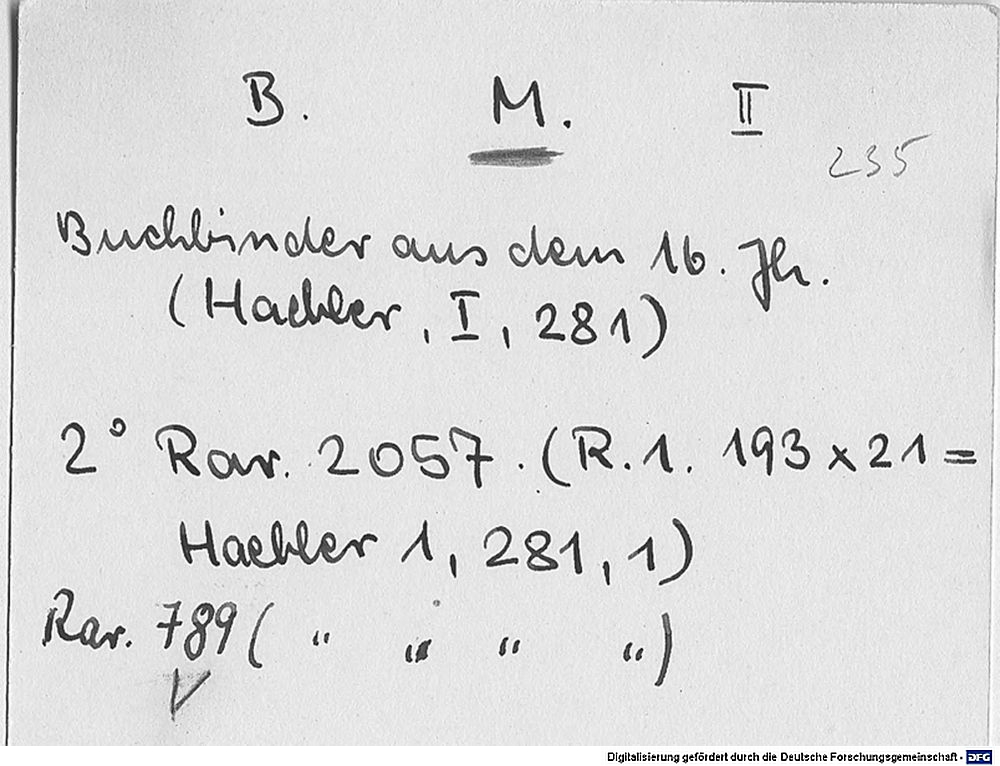 B. M. II
235
Buchbinder aus dem 16. Jh.
(Haebler, I, 281)
2° Rar. 2057. (R.1. 193 x 21 =
Haebler 1, 281, 1)
Rar. 789 ( " " " " )
Digitalisierung gefördert durch die Deutsche Forschungsgemeinschaft - DFG